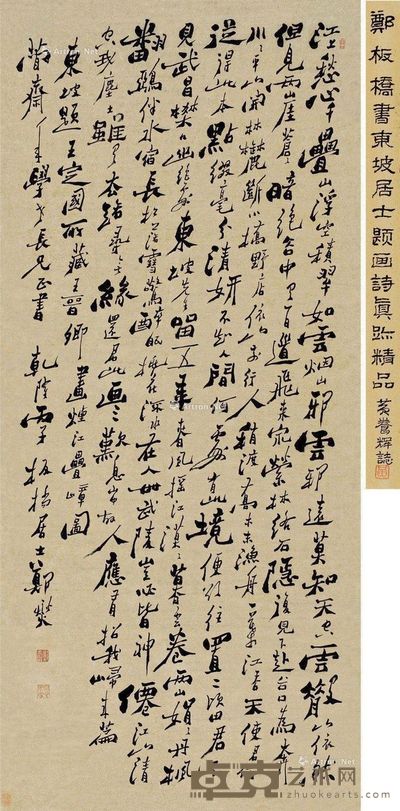 鄭板橋書東坡居士题画詩眞跡精品
江上愁心千疊山浮空積翠如雲烟山邪雲邪遠莫知天空雲散山依然
但見兩崖蒼蒼暗絕谷中有百道飛來泉縈林絡石隱復見下赴谷口為奔
川川平山開林麓斷小橋野店依山前行人稍渡喬木外漁舟一葉江吞天使君何
從得此本點綴毫末清妍不知人間何處有此境便欲往置二頃田君不
見武昌樊口幽絕處東坡先生留五年春風搖江漠漠暮雲卷雨山娟娟丹楓
翻鴉伴水宿長松落雪驚醉眠桃花流水在人世武陵豈必皆神僊江山清
空我塵土雖有去路尋無緣還君此画三歎息山中故人應有招我歸來篇
東坡題王定國所藏王晉卿畫煙江疊嶂圖
齋年學老長兄正書 乾隆丙子板橋居士鄭燮
卓克艺术网
zhuokearts.com